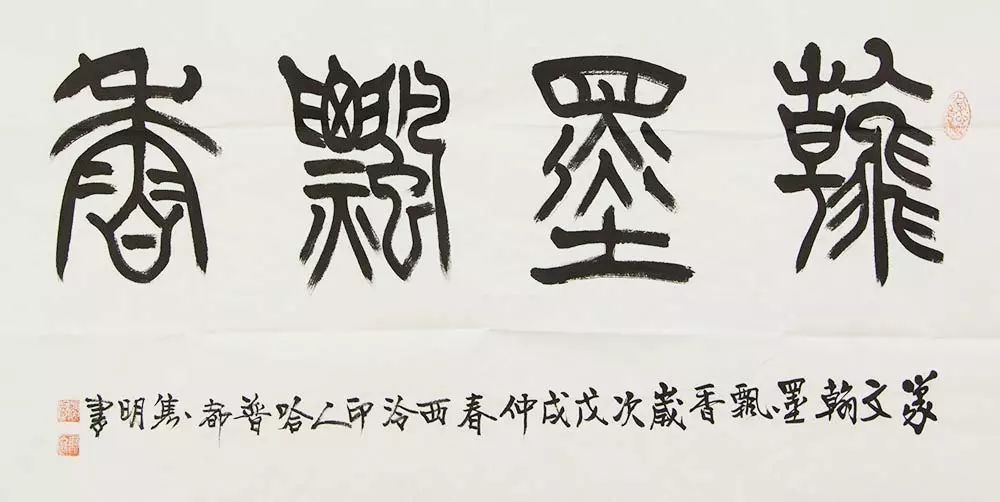 翰墨飄香
篆文翰墨飄香歲次戊戌仲春西泠印人哈普都、隽明書